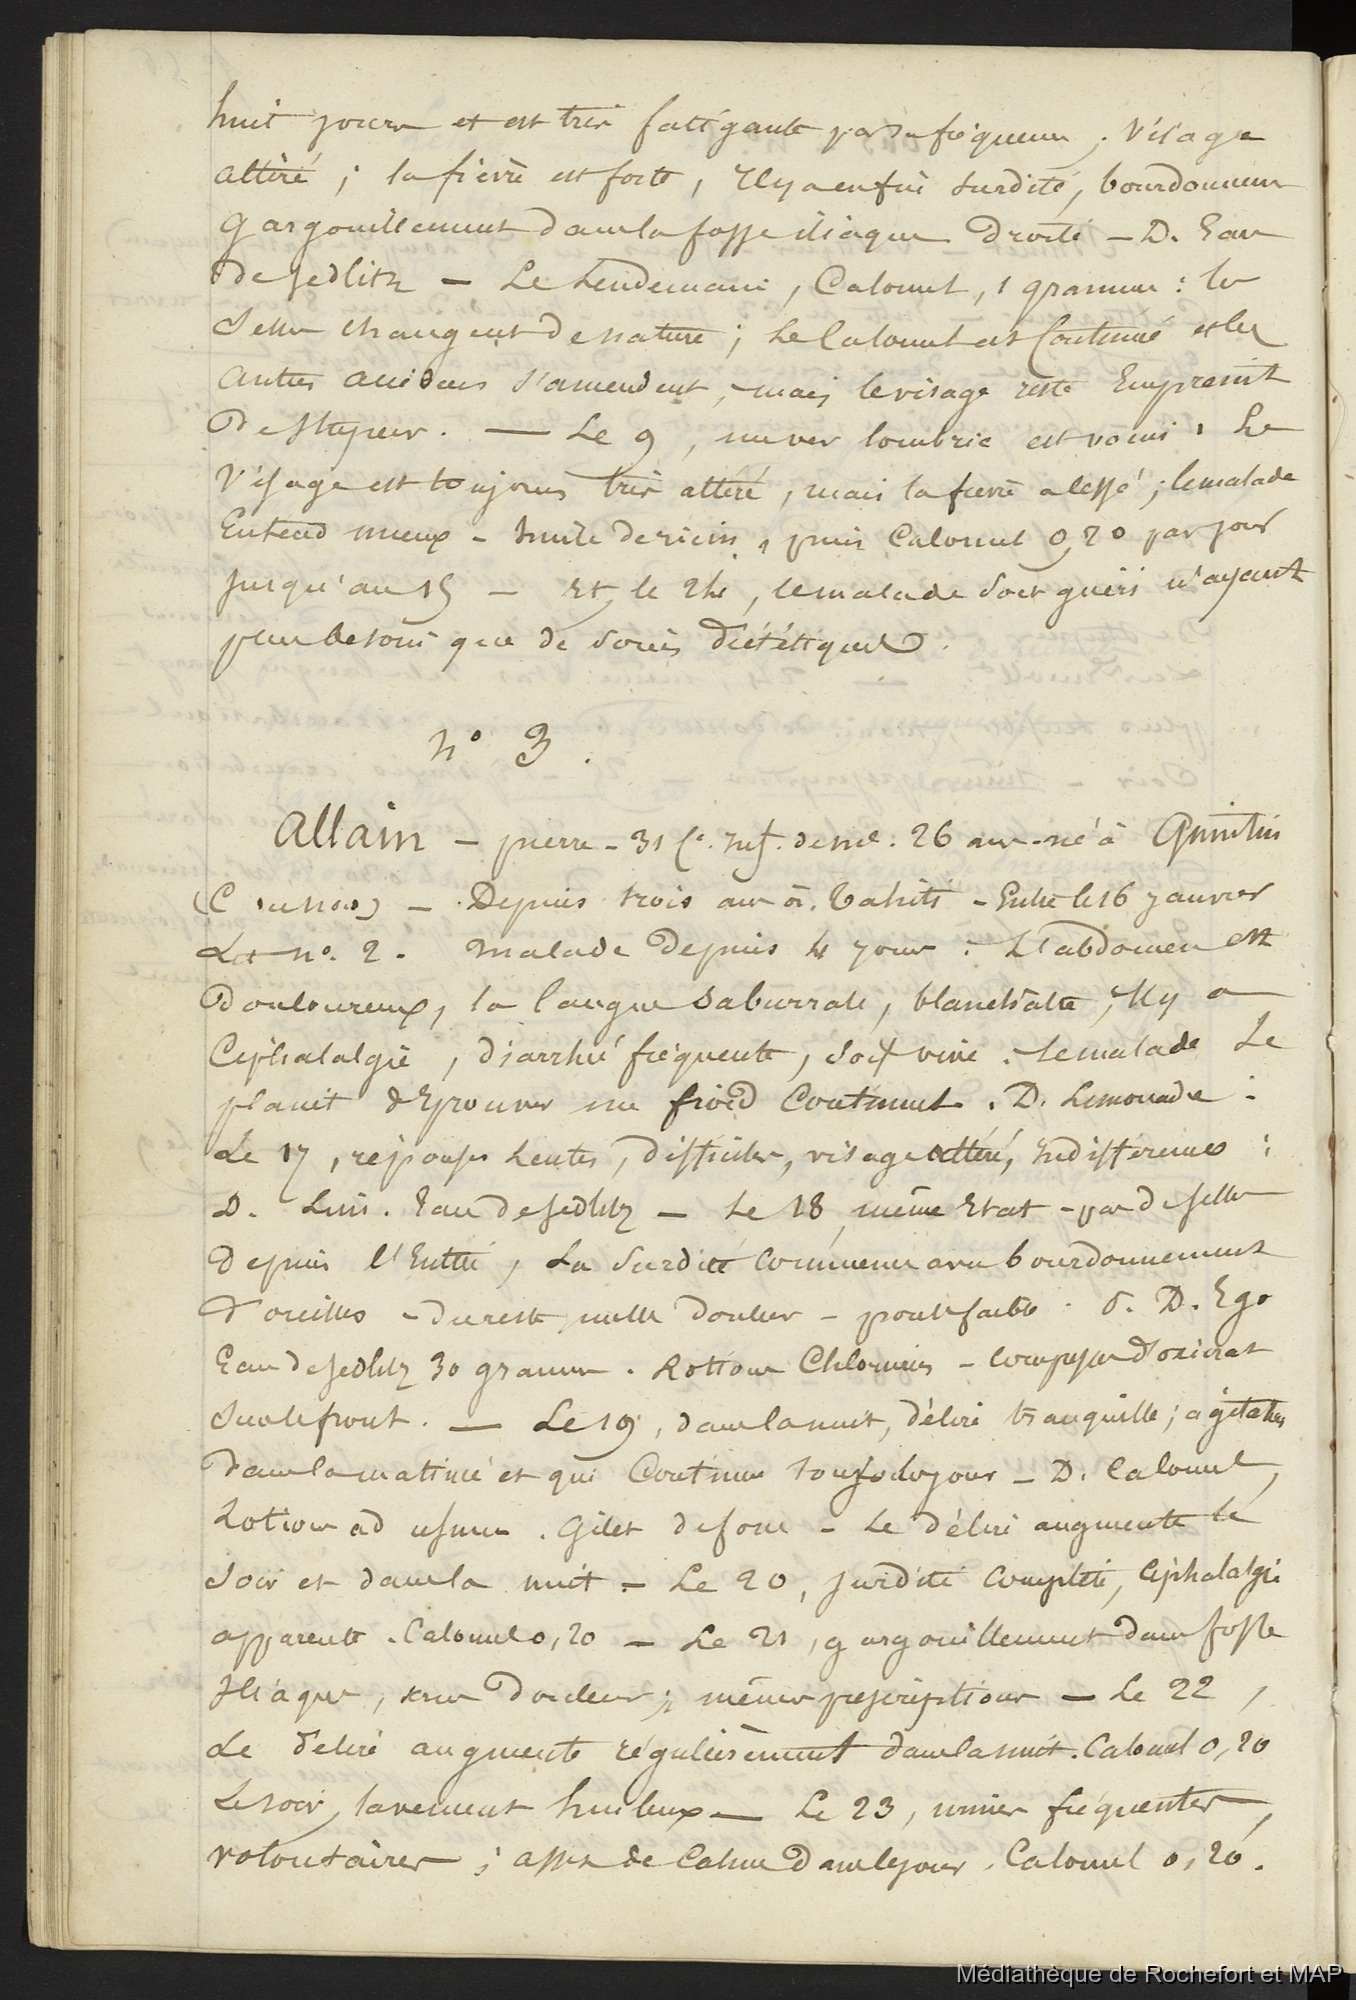 huit jours et est très fatigante par sa fréquence ; Visage
altéré ; la fièvre est forte, Il y a enfin surdité, bourdonnem
gargouillement dans la fosse iliaque droite — D. Eau
de sedlitz — Le lendemain, Calomel, 1 gramme : les
selles changent de nature ; le Calomel est Continué et les
autres accidens s'amendent, mais le visage reste Empreint
de stupeur. — Le 9, un ver lombric est vomi. Le
Visage est toujours très altéré, mais la fièvre a cessé ; le malade
Entend mieux - huile de ricin, puis Calomel 0,20 par jour
jusqu'au 15 — Et, le 24, le malade sort guéri n'ayant
plus besoin que de soins diététiques.
N° 3.
Allain — pierre - 31 Cie. Inf. de me. 26 ans - né à Quintin
— Depuis trois ans à Tahiti - Entré le 16 janvier
Lit n°. 2. Malade depuis 4 jours : L'abdomen est
douloureux, la langue saburrale, blanchâtre, Il y a
Céphalalgie, diarrhée fréquente, soif vive. Le malade se
plaint d'Eprouver un froid Continuel. D. Limonade.
Le 17, réponses lentes, difficiles, visage altéré, Indifférence :
D. Eau de sedlitz — Le 18, même Etat - pas de selles
depuis l'Entrée, La surdité Commence avec bourdonnement
d'oreilles - du reste nulle douleur - pouls faible. D. Ego
Eau de sedlitz 30 grammes. Lotions Chlorurées - compresse d'oxicrat
sur le front. — Le 19, dans la nuit, délire tranquille ; agitation
dans la matinée et qui Continue tout le jour — D. Calomel,
Lotions ad usum. Gilet de force - Le délire augmente le
soir et dans la nuit - Le 20, surdité complète, Céphalalgie
apparente. Calomel 0,20 — Le 21, gargouillement dans fosse
Iliaque, sans douleur ; mêmes prescriptions — Le 22,
Le délire augmente régulièrement dans la nuit. Calomel 0,20
Le soir, lavement huileux — Le 23, urines fréquentes,
volontaires ; assez de Calme dans le jour. Calomel 0,20.
Médiathèque de Rochefort et MAP